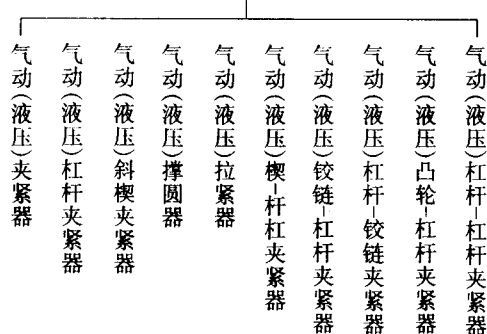 气动(液压)夹紧器
气动(液压)杠杆夹紧器
气动(液压)斜楔夹紧器
气动(液压)撑圆器
气动(液压)拉紧器
气动(液压)楔-杆杠夹紧器
气动(液压)铰链-杠杆夹紧器
气动(液压)杠杆-铰链夹紧器
气动(液压)凸轮-杠杆夹紧器
气动(液压)杠杆-杠杆夹紧器